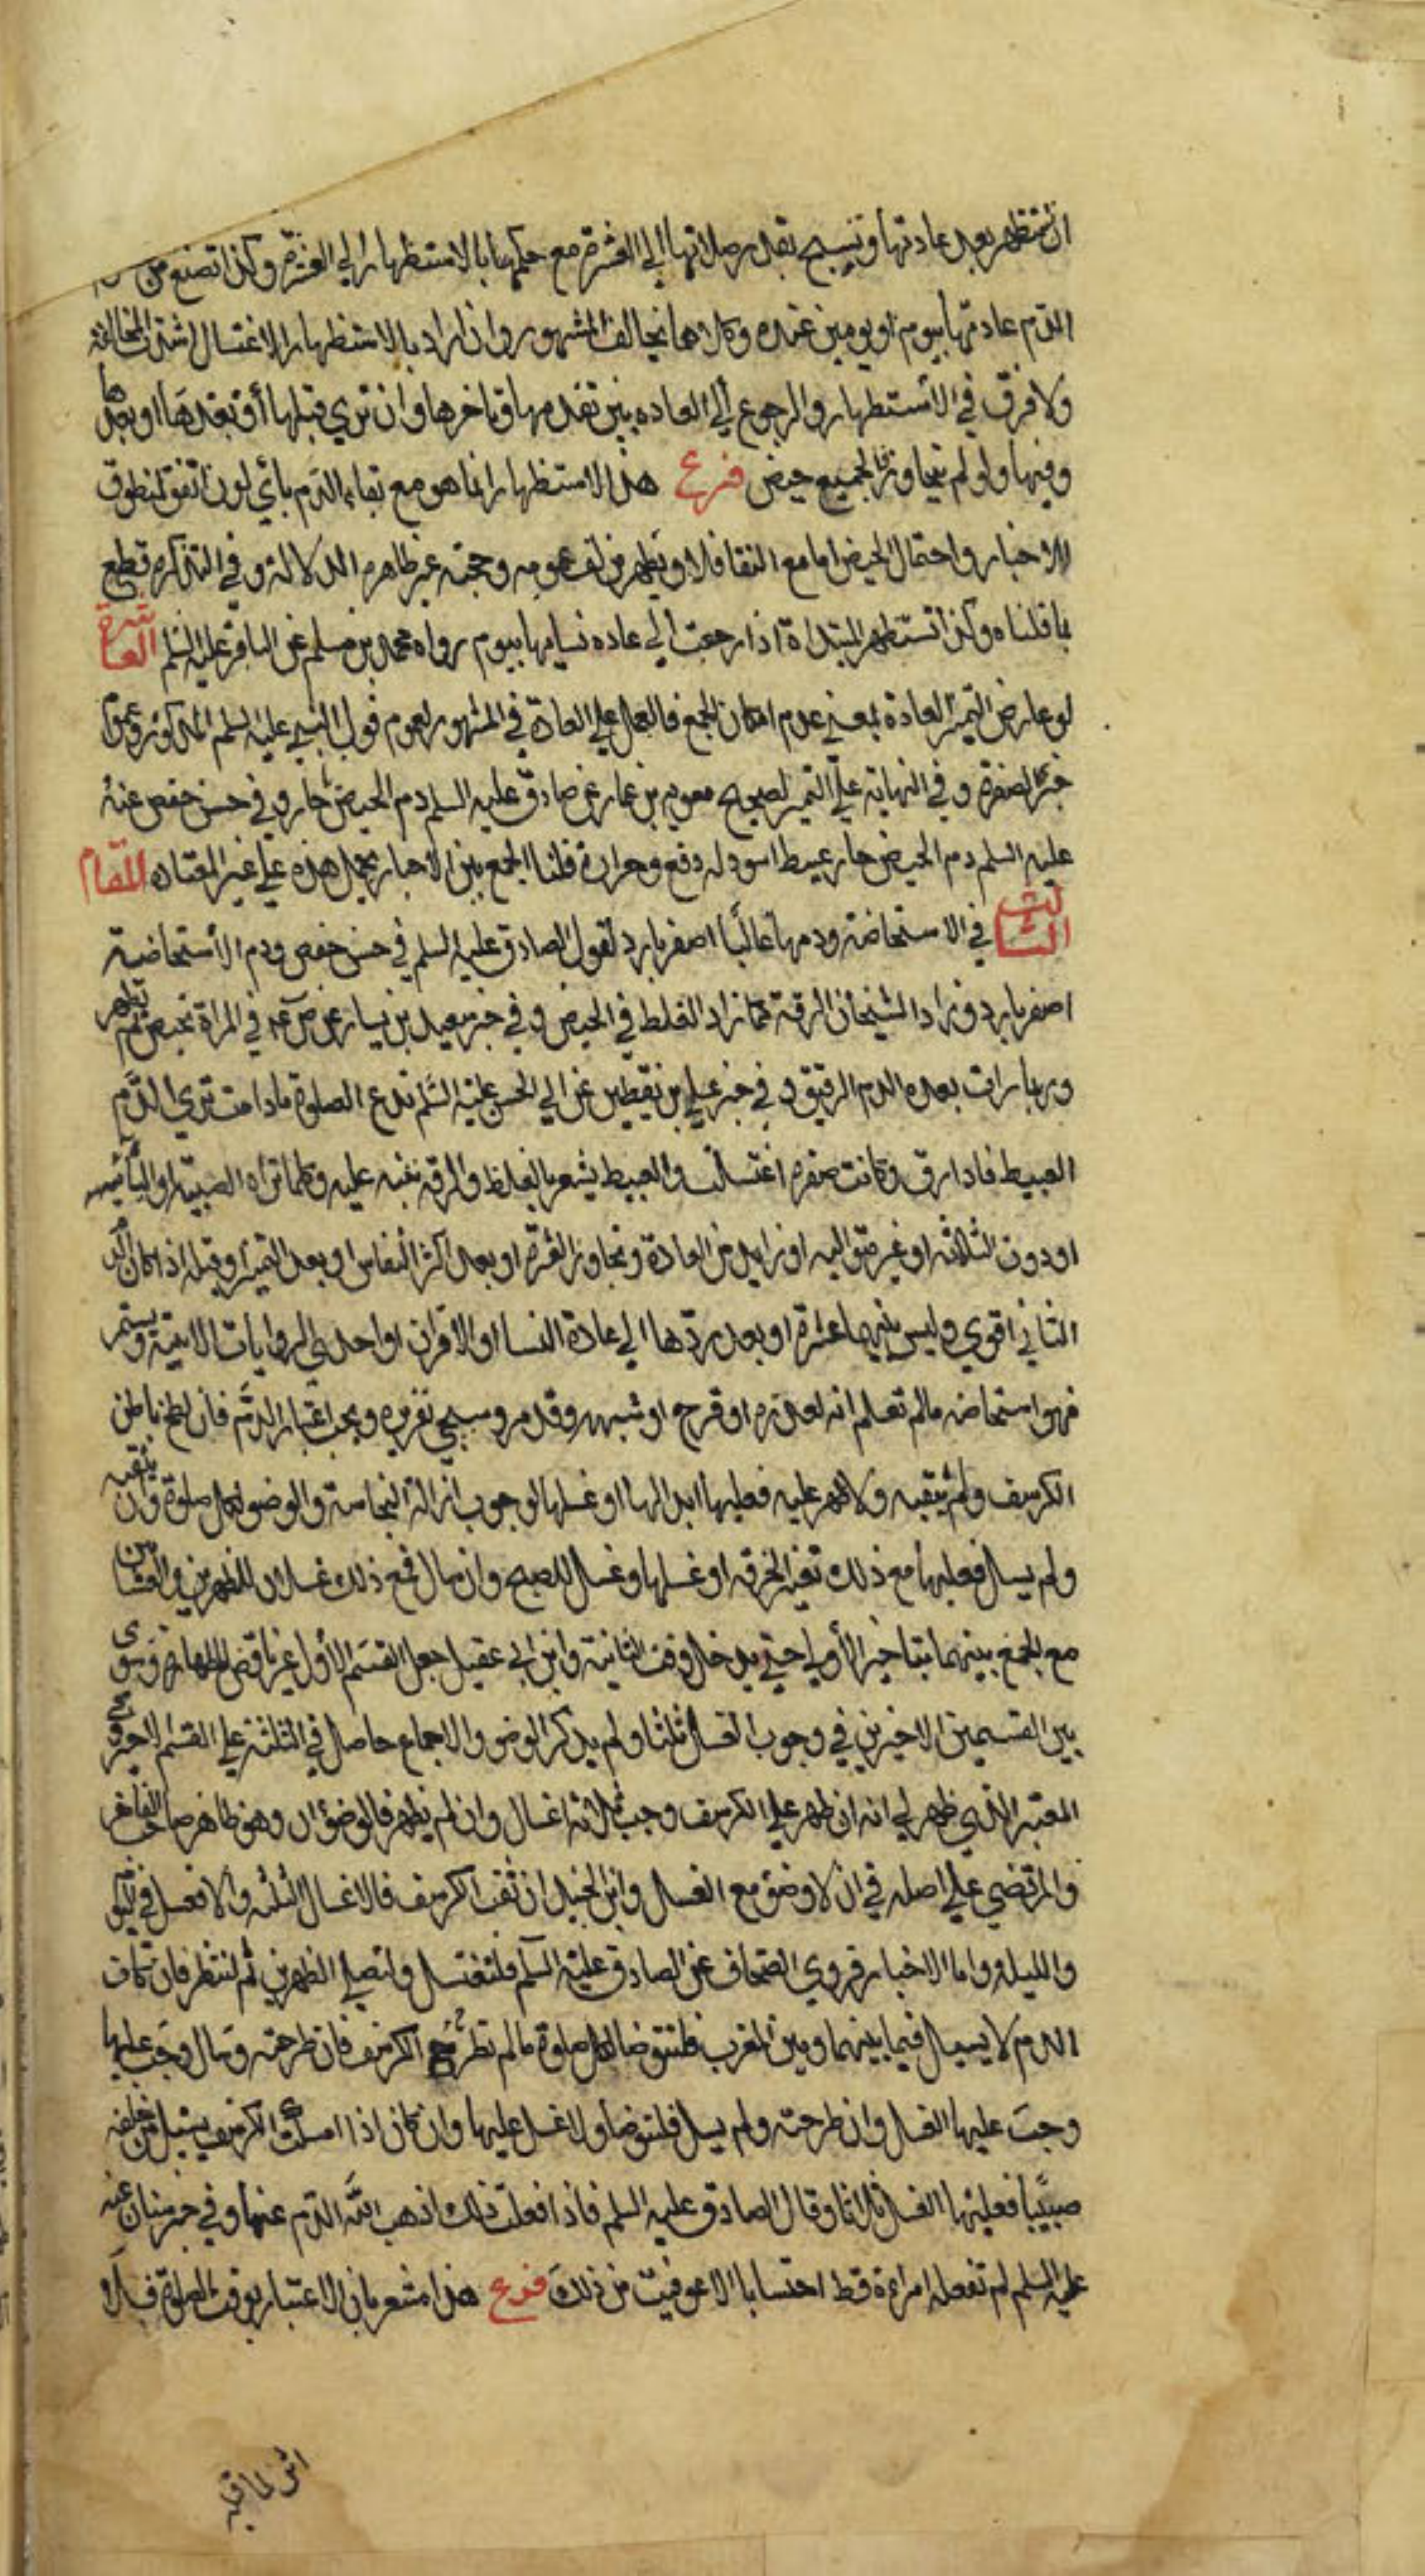 ان تستظهر بعد عادتها وتنسج بقدر صلاتها الي العشرة مع حكمها بالاستظهار الي العشرة وكذا تصنع من
الدم عادتها بيوم او يومين عنده وكلاهما يخالف المشهور وان اراد بالاستظهار الاغتسال اشتدت المخالفة
ولا فرق في الاستظهار والرجوع الي العاده بين تقدمها وتاخرها وان تري قبلها او بعدها او بعدها
وفيها ولو لم يتجاوز فالجميع حيض فرع هذا الاستظهار انما هو مع بقاء الدم باي لون اتفق لمنطوق
الاخبار واحتمال الحيض اما مع النقا فلا ويظهر من لف عمومه وحجته غير ظاهرة الدلالة وفي التذكرة قطع
بما قلناه وكذا تستظهر المبتداة اذا رجعت الي عاده نسايها بيوم رواه محمد بن مسلم عن الباقر عليه السلم العاشرة
لو عارض التميز العادة بمعني عدم امكان الجمع فالعمل علي العادة في المشهور لعموم قول النبي عليه السلم المذكور وعموم
خبر الصفرة و في النهاية علي التميز لصحيح معويه بن عمار عن صادق عليه السلم دم الحيض حار و في حسن حفص عنه
عليه السلم دم الحيض حار عبيط اسود له دفع وحرارة قلنا الجمع بين الاخبار بحمل هذه علي غير المعتاده المقام
الثالث في الاستحاضة ودمها غالبا اصفر بارد لقول الصادق عليه السلم في حسن حفص ودم الاستحاضية
اصفر بارد و زاد الشيخان الرقة كما زاد الغلظ في الحيض و في خبر سعيد بن يسار عن ص ع في المراة تحيض ثم تطهر
وربما رات بعده الدم الرقيق و في خبر علي بن يقطين عن ابي الحسن عليه السلم تدع الصلوة مادامت تري الدم
العبيط فاذا رق وكانت صفرة اغتسلت والعبيط يشعر بالغلظ والرقة نفيه عليه وكلما تراه الصبية او اليائسه
او دون الثلاثة او غير متواليه او زايد من العادة وتجاوز العشرة او بعد اكثر النفاس او بعد التميز او قبله اذا كان الدم
الثاني اقوي وليس بينهما عشرة او بعد ردها الي عادة النسا او الاقران او احدي الروايات الاتية ويستمر
فهو استحاضه مالم تعلم انه لعذرة او قرح او شبهه وقد مر وسيجي تقريره ويجب اعتبار الدم فان لطخ باطن
الكرسف ولم يثقبه ولا ظهر عليه فعليها ابدالها او غسلها لوجوب ازالة النجاسة والوضو لكل صلوة وان يثقبه
ولم يسل فعليها مع ذلك تغير الخرقه او غسلها وغسل للصبح وان سال فمع ذلك غسلان للظهرين والعشاين
مع الجمع بينهما بتاخير الاولي حتي يدخل وقت الثانية وابن ابي عقيل جعل القسم الاول غير ناقض للطهارة وسوي
بين القسيمين الاخيرين في وجوب الغسل ثلثا ولم يذكر الوضو والاجماع حاصل في الثلثة علي القسم الاخير وفي
المعتبر الذي ظهر لي انه ان ظهر علي الكرسف وجب ثلاثة اغسال وان لم يظهر فالوضؤان وهو ظاهر صاحب الفاخر
والمرتضي علي اصله في ان لا وضؤ مع الغسل وابن الجنيد ان ثقب الكرسف فالاغسال الثلثه والا فغسل في اليوم
والليلة واما الاخبار فروي الصحاف عن الصادق عليه السلم فلتغتسل ولتصلي الظهرين ثم لتنظر فان كان
الدم لا يسيل فيما بينهما وبين المغرب فلتتوضا لكل صلوة مالم تطرح الكرسف فان طرحته وسال وجب عليها
وجب عليها الغسل وان طرحته ولم يسل فلتتوضا ولا غسل عليها وان كان اذا امسكت الكرسف يسيل من خلفه
صبيبا فعليها الغسل ثلاثا وقال الصادق عليه السلم فاذا فعلت ذلك اذهب الله الدم عنها و في خبر سنان عنه
عليه السلم لم تفعله امراءة قط احتسابا الا عوفيت من ذلك فرع هذا مشعر بان الاعتبار بوقت الصلوة فلا